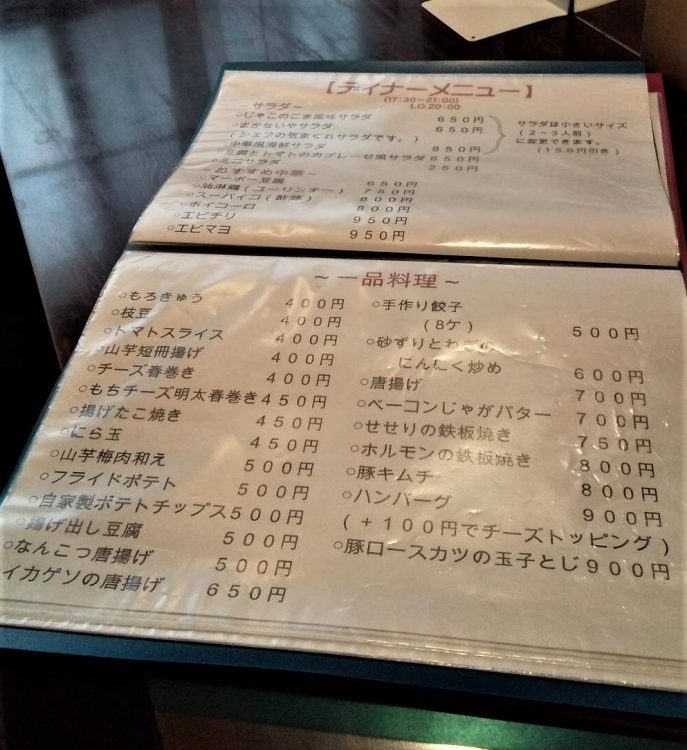 【ディナーメニュー】
(17:30~21:00)
LO.20:00
~サラダ~
○じゃこのごま風味サラダ 650円
○まかないやサラダ 650円
(シェフの気まぐれサラダです。)
中華風海鮮サラダ 850円
豆腐とトマトのカプレーゼ風サラダ 650円
○ミニサラダ 250円
サラダは小さいサイズ
(2-3人前)
に変更できます。
(150円引き)
~おすすめ中華~
○マーボー豆腐 650円
○油淋鶏(ユーリンチー) 750円
○スーパイコ(酢豚) 800円
○ホイコーロ 800円
○エビチリ 950円
○エビマヨ 950円
~一品料理~
○もろきゅう 400円
○枝豆 400円
○トマトスライス 400円
○山芋短冊揚げ 400円
○チーズ春巻き 400円
○もちチーズ明太春巻き 450円
○揚げたこ焼き 450円
○にら玉 450円
○山芋梅肉和え 500円
○フライドポテト 500円
○自家製ポテトチップス 500円
○揚げ出し豆腐 500円
○なんこつ唐揚げ 500円
イカゲソの唐揚げ 650円
○手作り餃子
(8ケ) 500円
○砂ずりとねぎの
にんにく炒め 600円
○唐揚げ 700円
○ベーコンじゃがバター 700円
○せせりの鉄板焼き 750円
○ホルモンの鉄板焼き 800円
○豚キムチ 800円
○ハンバーグ 900円
(+100円でチーズトッピング)
○豚ロースカツの玉子とじ 900円